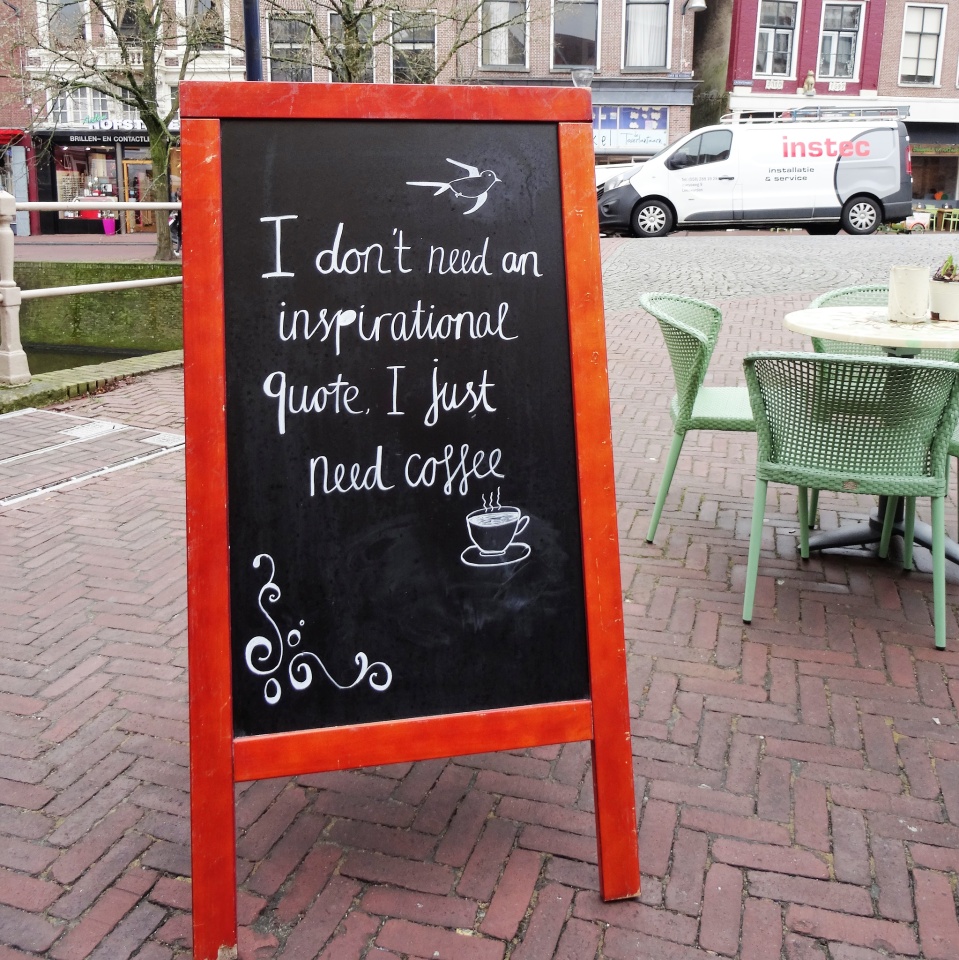 HOFST
BRILLEN- EN CONTACTLE
instec
installatie
& service
I don't need an
inspirational
quote, I just
need coffee